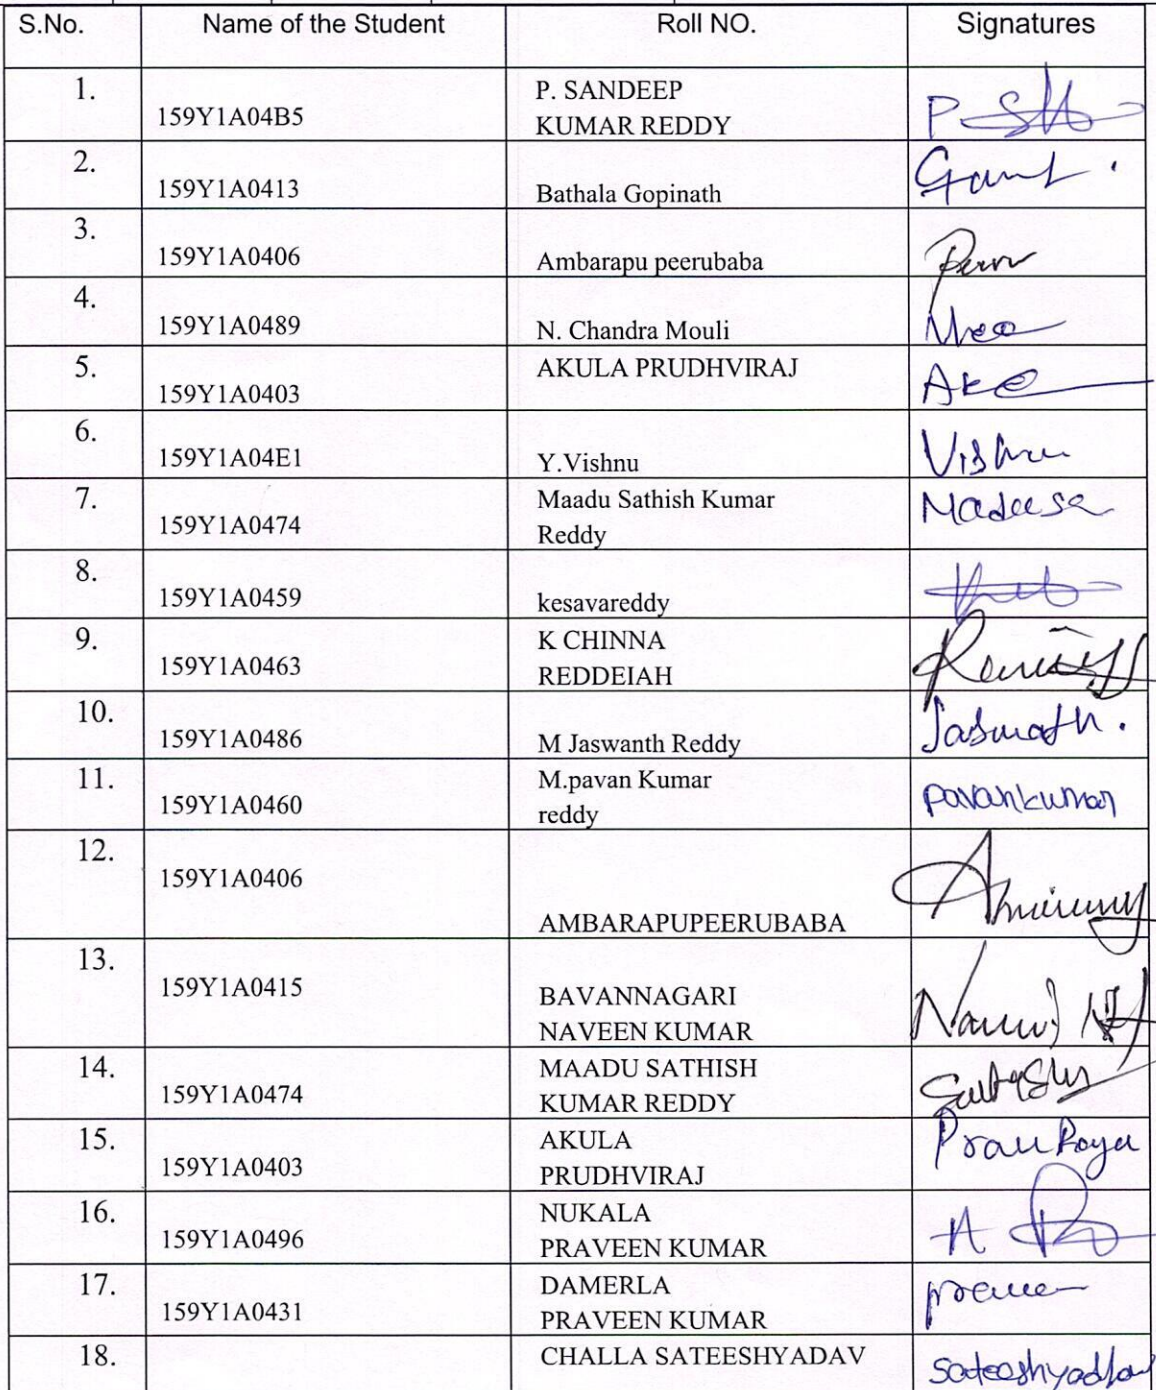 S.No. Name of the Student Roll NO. Signatures
1. 159Y1A04B5 P. SANDEEP
KUMAR REDDY
2. 159Y1A0413 Bathala Gopinath
3. 159Y1A0406 Ambarapu peerubaba
4. 159Y1A0489 N. Chandra Mouli
5. 159Y1A0403 AKULA PRUDHVIRAJ
6. 159Y1A04E1 Y.Vishnu Vishnu
7. 159Y1A0474 Maadu Sathish Kumar
Reddy
8. 159Y1A0459 kesavareddy
9. 159Y1A0463 K CHINNA
REDDEIAH
10. 159Y1A0486 M Jaswanth Reddy
11. 159Y1A0460 M.pavan Kumar
reddy pavankumar
12. 159Y1A0406 AMBARAPUPEERUBABA
13. 159Y1A0415 BAVANNAGARI
NAVEEN KUMAR
14. 159Y1A0474 MAADU SATHISH
KUMAR REDDY
15. 159Y1A0403 AKULA
PRUDHVIRAJ
16. 159Y1A0496 NUKALA
PRAVEEN KUMAR
17. 159Y1A0431 DAMERLA
PRAVEEN KUMAR
18. CHALLA SATEESHYADAV